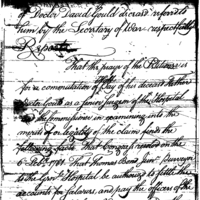 of Doctor David Gould deceased referred to
him by the Secretary of War respectfully
Reports
That the prayer of the Petitioner is
for a commutation of Pay of his deceased Brother
Doctor Gould as a Senior Surgeon of the Hospital
and the Commissioner in examining into the
merits or legality of the claim finds the
following facts. That Congress resolved on the
6 Feby 1781. That Thomas Bond Junr. Purveyor
to the Genl. Hospital be authorised to settle the
accounts for salaries, and pay the officers of the